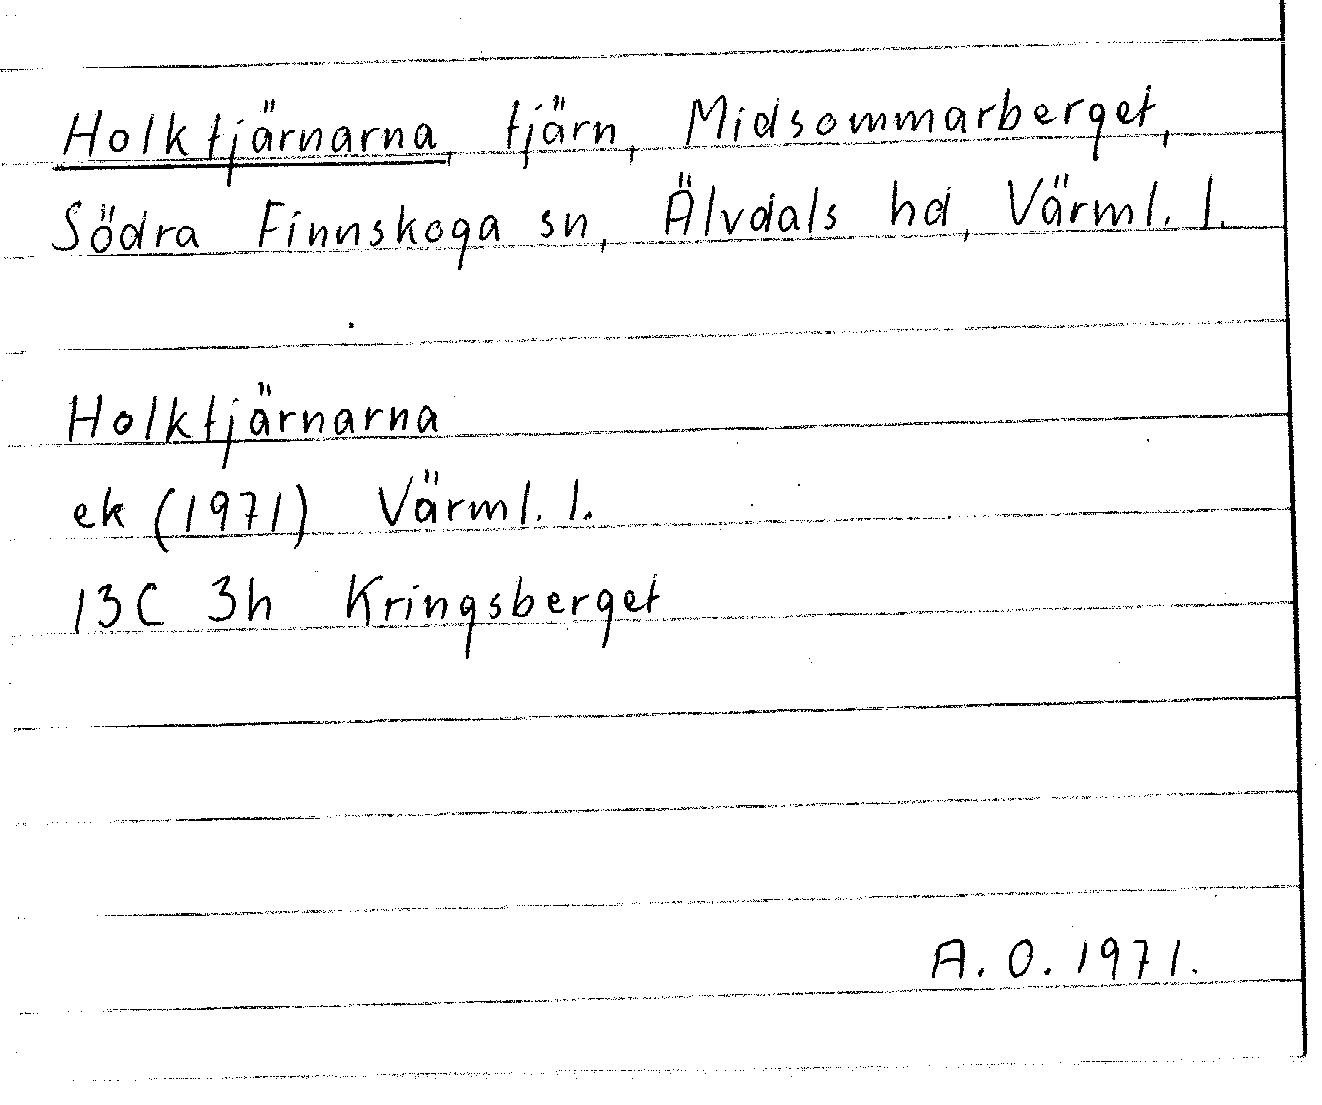 Holktjärnarna, tjärn, Midsommarberget,
Södra Finnskoga sn, Älvdals hd, Värml. l.
Holktjärnarna
ek (1971) Värml. l.
13C 3h Kringsberget
A. O. 1971.